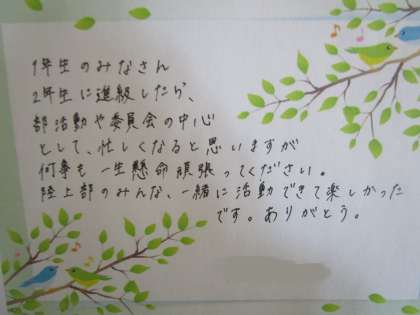 1年生のみなさん
2年生に進級したら、
部活動や委員会の中心
として、忙しくなると思いますが
何事も一生懸命頑張ってください。
陸上部のみんな、一緒に活動できて楽しかった
です。ありがとう。